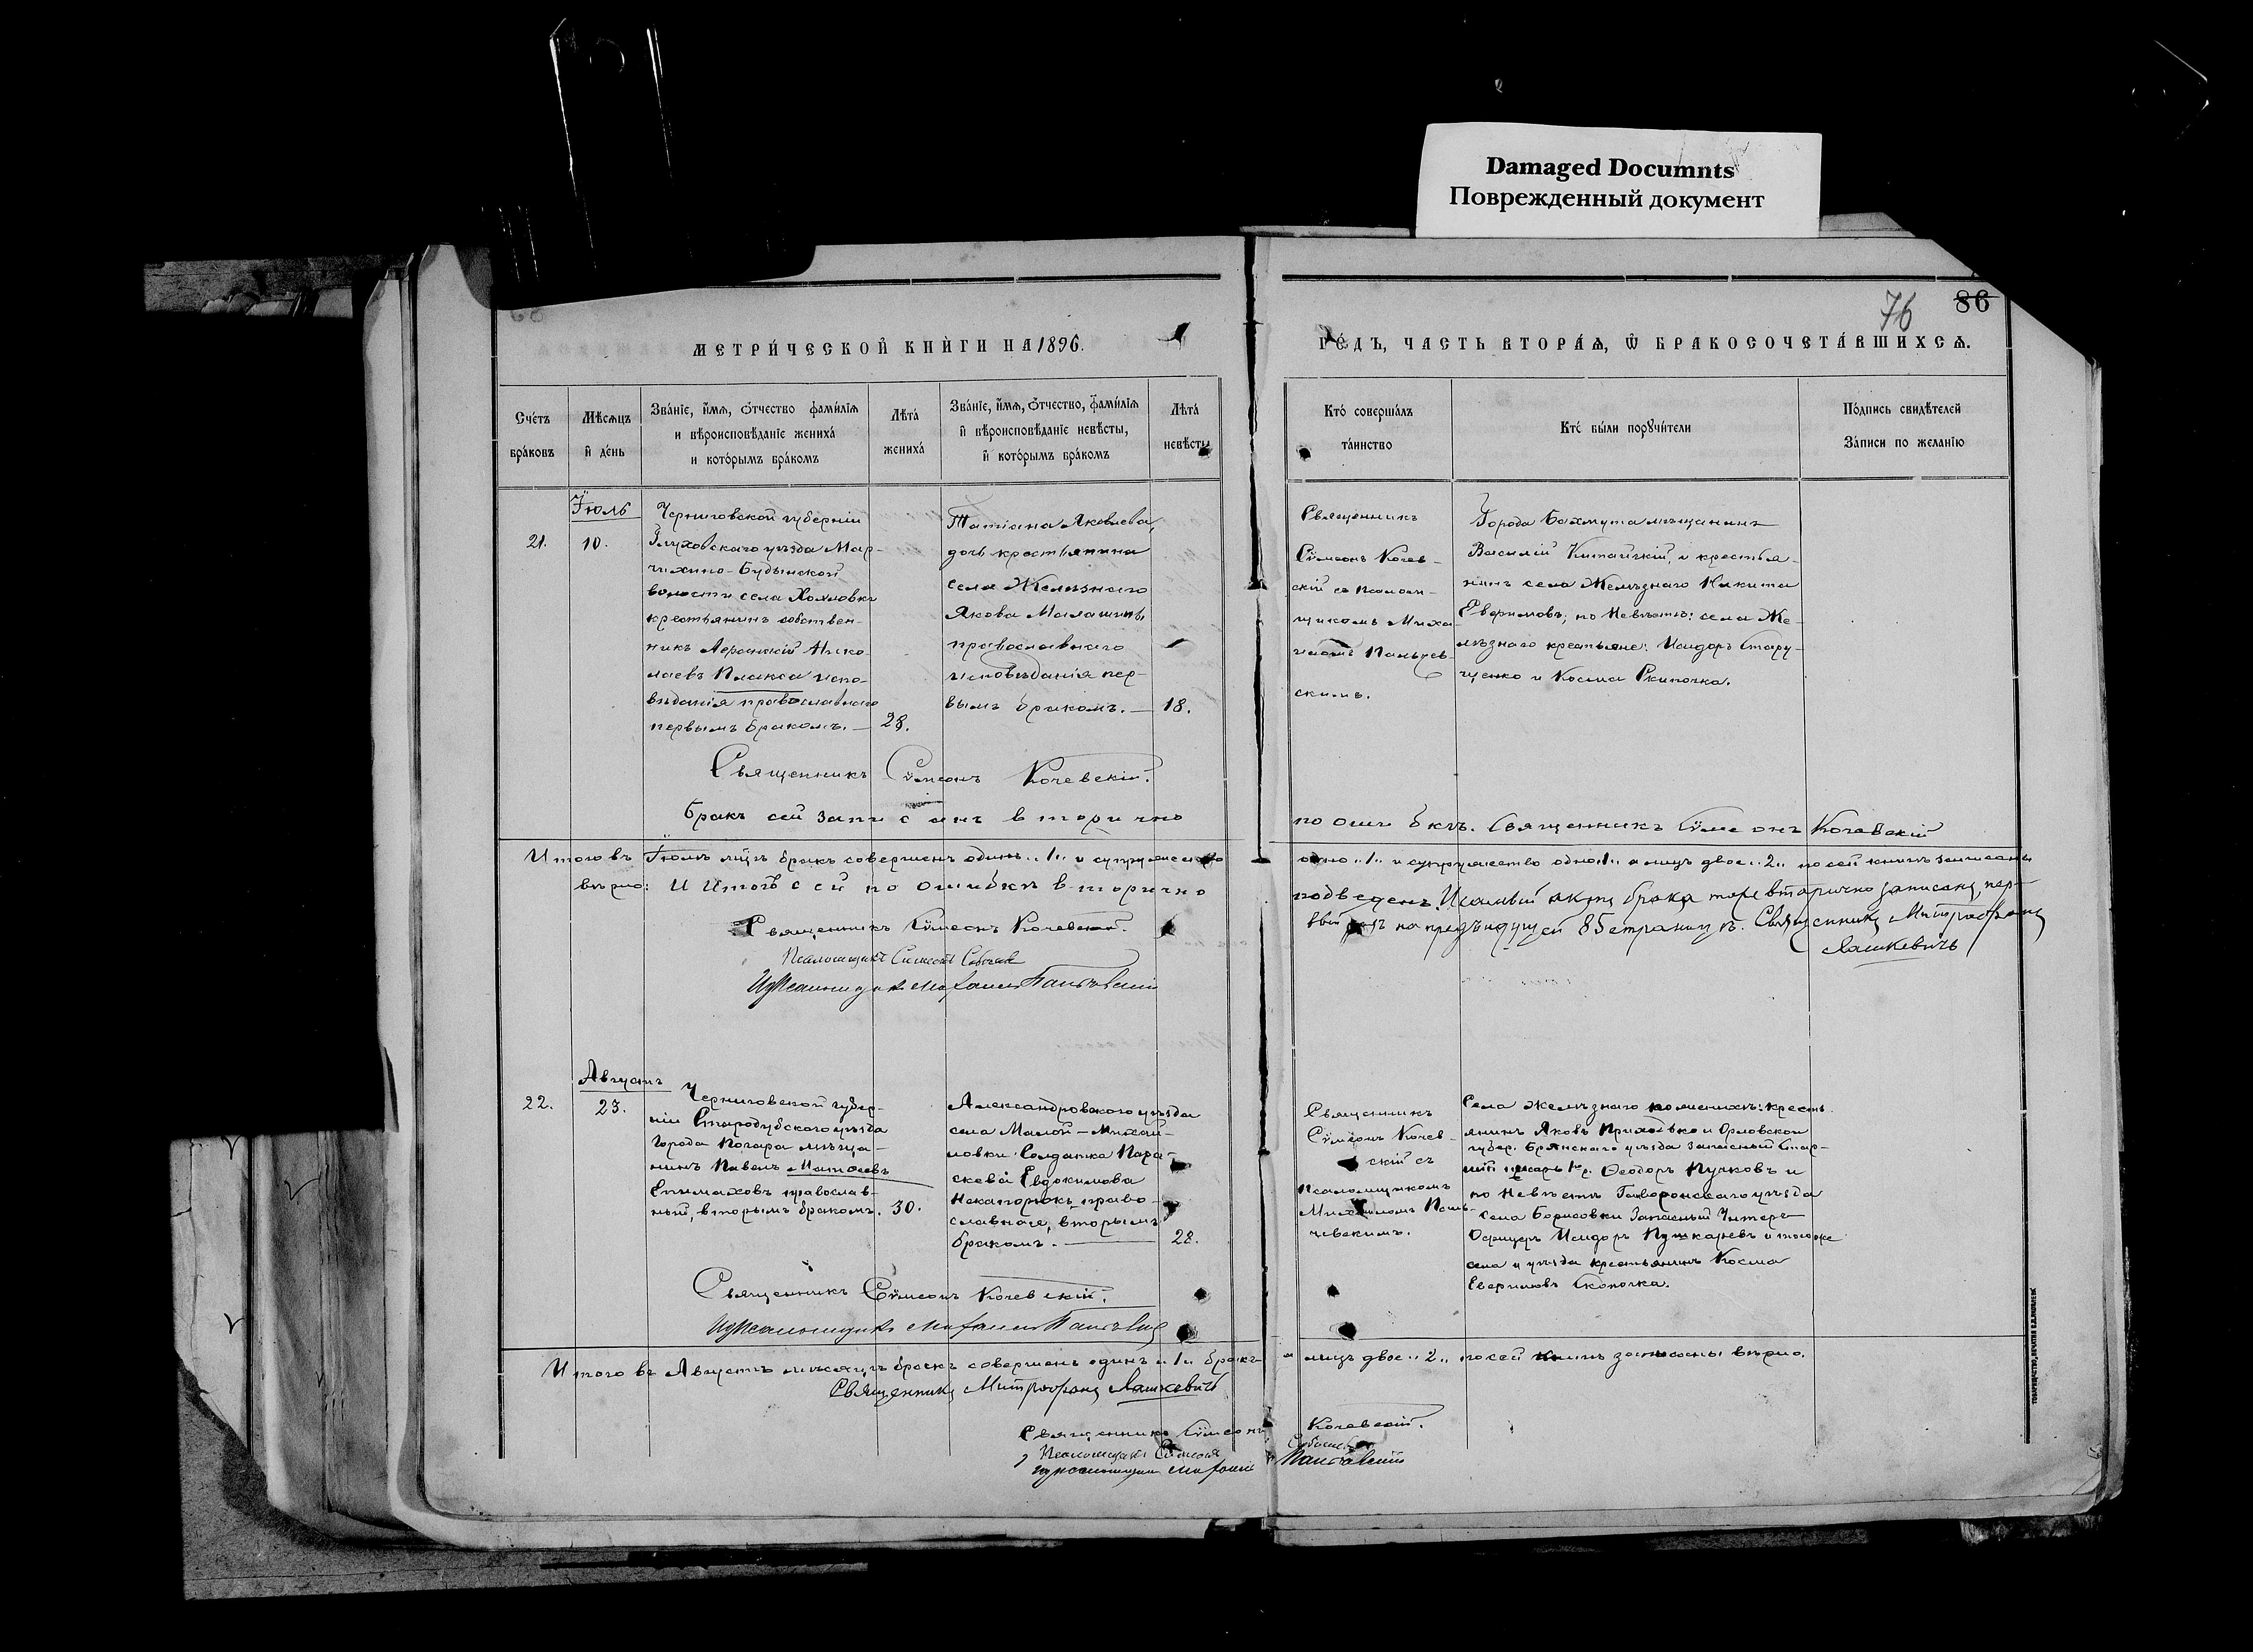 Damaged Documnts
Поврежденный документ
76
86
МЕТРИ́ЧЕСКОЙ КНИ́ГИ НА 1896.
ГО́ДЪ, ЧАСТЬ ВТОРА́Ѧ, Ѿ БРАКОСОЧЕТА́ВШИХСѦ.
Сче́тъ
бра́ковъ
Мѣ́сѧцъ
и҆ де́нь
Зва́нїе, и҆́мѧ, ѻ҆́тчество фами́лїѧ
и вѣроисповѣ́данїе жениха́
и кото́рымъ бра́комъ
Лѣта̀
жениха́
Зва́нїе, и҆́мѧ, ѻ҆́тчество, фами́лїѧ
и҆ вѣроисповѣ́данїе невѣ́сты,
и҆ кото́рымъ бра́комъ
Лѣта̀
невѣ́сты
Кто̀ соверша́лъ
та́инство
Кто̀ бы́ли порꙋчи́тели
По́дпись свидѣ́телей
За́писи по жела́нїю
Іюль
21.
10.
Черниговской губерніи
Глуховскаго уѣзда Мар-
чихино-Будынской
волости села Хохловки
крестьянинъ собствен-
никъ Афанасій Нико-
лаевъ Плакса испо-
вѣданія православнаго
первымъ бракомъ. —
28.
Татіана Яковлева,
дочь крестьянина
села Желѣзнаго
Якова Малашины
православнаго
исповѣданія пер-
вымъ бракомъ. —
18.
Священникъ
Сѵмеонъ Кочев-
скій съ псалом-
щикомъ Миха-
иломъ Паньчев-
скимъ.
Города Бахмута мѣщанинъ
Василій Китайскій, и крестья-
нинъ села Желѣзнаго Никита
Евфимовъ; по невѣстѣ: села Же-
лѣзнаго крестьяне: Исидоръ Стару-
щенко и Косма Скипочка.
Священникъ Сѵмеонъ Кочевскій.
Бракъ сей записанъ вторично
по ошибкѣ. Священникъ Сѵмеонъ Кочевскій
Итого въ Іюлѣ мѣс. бракъ совершенъ одинъ „1„ и супружество
одно „1„ и супружество одно „1„ а лицъ двое „2„ по сей книгѣ записаны
вѣрно: И Итогъ сей по ошибкѣ вторично
подведенъ. И самый актъ брака тоже вторично записанъ, пер-
вый разъ на предъидущей 85 страницѣ. Священникъ Митрофанъ
Ляшкевичъ
Священникъ Сѵмеонъ Кочевскій.
Псаломщикъ Симеонъ
И Псаломщикъ Михаилъ Паньчевскій
Августъ
22.
23.
Черниговской губер-
ніи Стародубскаго уѣзда
города Погара мѣща-
нинъ Павелъ Матѳеевъ
Епимаховъ православ-
ный, вторымъ бракомъ.
30.
Александровскаго уѣзда
села Малой-Михай-
ловки солдатка Пара-
скева Евдокимова
православная, вторымъ
бракомъ. —
28.
Священникъ
Сѵмеонъ Кочев-
скій съ
Псаломщикомъ
Михаиломъ Пань-
чевскимъ.
Села Желѣзнаго по женихѣ: кресть-
янинъ Яковъ Приходько и Орловской
губер. Брянскаго уѣзда запасный Стар-
шій писарь Ѳеодоръ Пучковъ и
по невѣстѣ Гайворонскаго уѣзда
села Борисовки запасный Унтеръ-
Офицеръ Исидоръ Пушкаревъ и того же
села и уѣзда крестьянинъ Косма
Евфимовъ Скопочка.
Священникъ Сѵмеонъ Кочевскій.
И Псаломщикъ Михаилъ Паньчевскій
Итого въ Августѣ мѣсяцѣ бракъ совершенъ одинъ „1„ бракъ
а лицъ двое „2„ по сей книгѣ записаны вѣрно.
Священникъ Митрофанъ Ляшкевичъ
Священникъ Сѵмеонъ Кочевскій.
Псаломщикъ Симеонъ
И псаломщикъ Михаилъ Паньчевскій